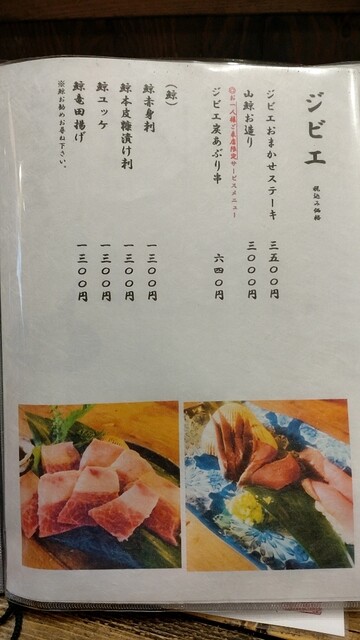 ジビエ 税込み価格
ジビエおまかせステーキ 三五〇〇円
山鯨お造り 三〇〇〇円
お一人様ご来店限定サービスメニュー
ジビエ炭あぶり串 六四〇円
(鯨)
鯨赤身刺 一三〇〇円
鯨本皮糠漬け刺 一三〇〇円
鯨ユッケ 一三〇〇円
鯨竜田揚げ 一三〇〇円
※鯨お勧めお尋ね下さい。